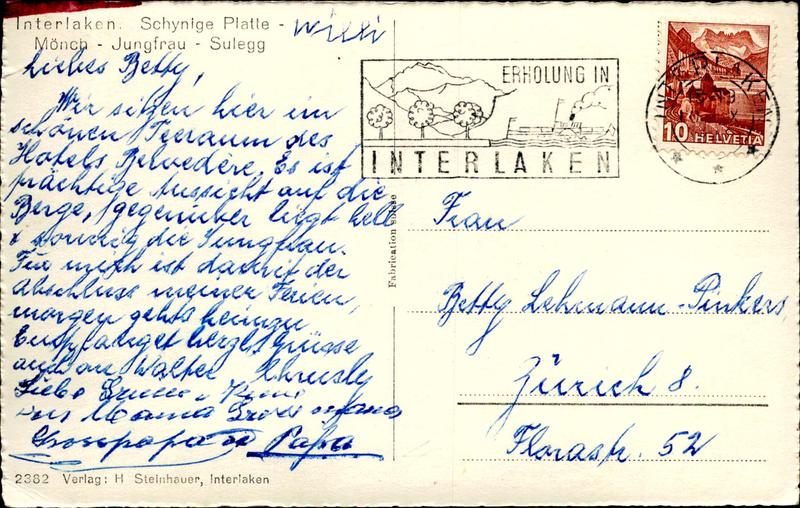 Interlaken. Schynige Platte -
Mönch - Jungfrau - Sulegg
Willi
Liebes Betty,
Wir sitzen hier im
schönen Teeraum des
Hotels Belvedère. Es ist
prächtige Aussicht auf die
Berge, gegenüber liegt hell
& sonnig die Jungfrau.
Für mich ist damit der
Abschluss meiner Ferien,
morgen gehts heimzu
Empfanget herzl. Grüsse
auch an Walter
Liebe
Mama
Grosspapa Papa
2362 Verlag: H Steinhauer, Interlaken
Fabrication Suisse
ERHOLUNG IN
INTERLAKEN
INTERLAKEN
10 HELVETIA
Frau
Betty Lehmann-Pinkers
Zürich 8.
Florastr. 52